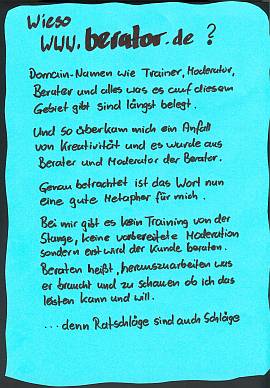 Wieso
www.berator.de ?
Domain-Namen wie Trainer, Moderator,
Berater und alles was es auf diesem
Gebiet gibt sind längst belegt.
Und so überkam mich ein Anfall
von Kreativität und es wurde aus
Berater und Moderator der Berator.
Genau betrachtet ist das Wort nun
eine gute Metapher für mich.
Bei mir gibt es kein Training von der
Stange, keine vorbereitete Moderation
sondern erst wird der Kunde beraten.
Beraten heißt, herauszuarbeiten was
er braucht und zu schauen ob ich das
leisten kann und will.
...denn Ratschläge sind auch Schläge